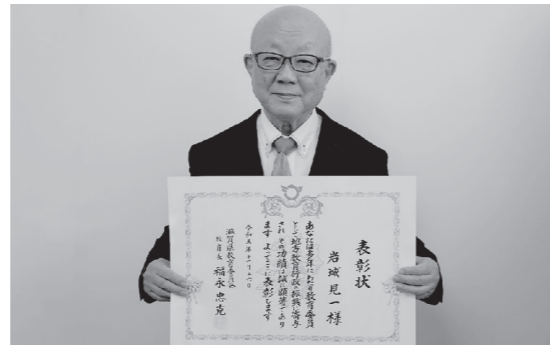 表彰状
岩城見一様
あなたは多年にわたり教育委員
として地方教育行政の振興に寄与
され その功績は誠に顕著であり
ます よってここに表彰します
令和五年十一月
滋賀県教育委員会
教育長 福永忠克